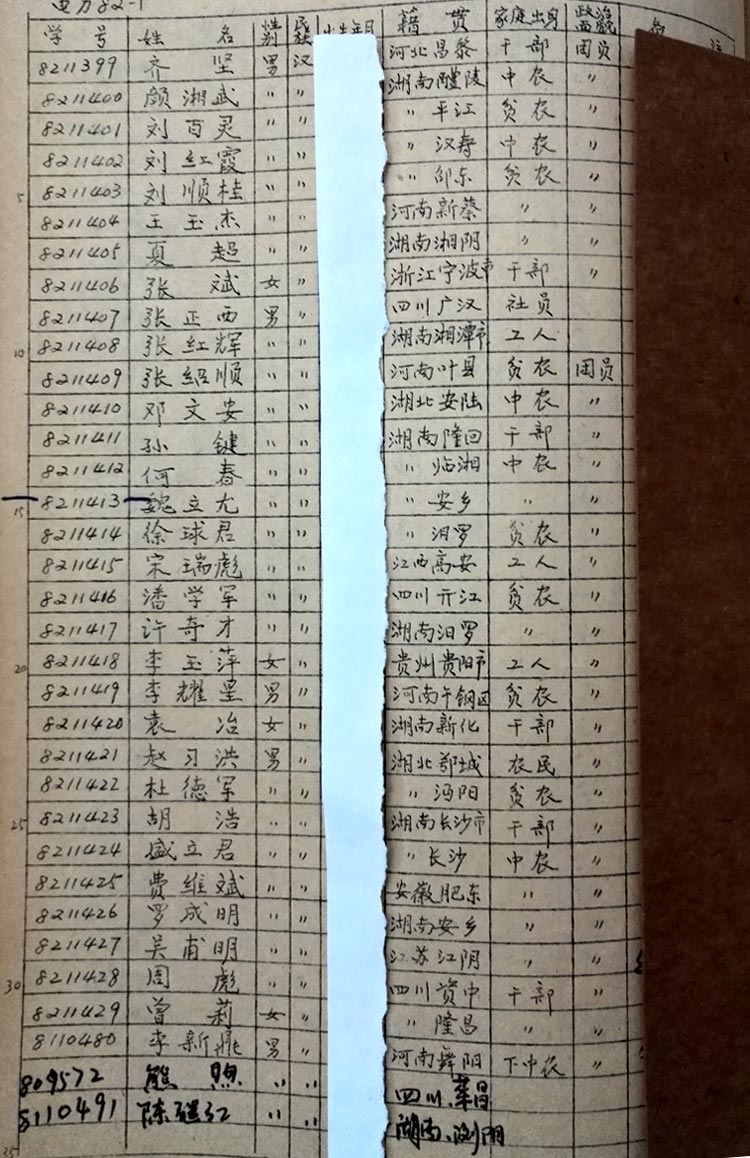 电力82-1
学号 姓名 性别 民族 出生年月 籍贯 家庭出身 政治面貌 备注
8211399 齐坚 男 汉 河北昌黎 干部 团员
8211400 颜湘武 〃 〃 湖南醴陵 中农 〃
8211401 刘百灵 〃 〃 〃 平江 贫农 〃
8211402 刘红霞 〃 〃 〃 汉寿 中农 〃
5 8211403 刘顺桂 〃 〃 〃 邵东 贫农 〃
8211404 王玉杰 〃 〃 河南新蔡 〃 〃
8211405 夏超 〃 〃 湖南湘阴 〃 〃
8211406 张斌 女 〃 浙江宁波市 干部 〃
8211407 张正西 男 〃 四川广汉 社员
10 8211408 张红辉 〃 〃 湖南湘潭市 工人
8211409 张绍顺 〃 〃 河南叶县 贫农 团员
8211410 邓文安 〃 〃 湖北安陆 中农 〃
8211411 孙键 〃 〃 湖南隆回 干部 〃
8211412 何春 〃 〃 〃 临湘 中农 〃
15 8211413 魏立尤 〃 〃 〃 安乡 〃 〃
8211414 徐球君 〃 〃 〃 汨罗 贫农 〃
8211415 宋瑞彪 〃 〃 江西高安 工人 〃
8211416 潘学军 〃 〃 四川开江 贫农 〃
8211417 许奇才 〃 〃 湖南汨罗 〃 〃
20 8211418 李玉萍 女 〃 贵州贵阳市 工人 〃
8211419 李耀星 男 〃 河南午钢区 贫农 〃
8211420 袁冶 女 〃 湖南新化 干部 〃
8211421 赵习洪 男 〃 湖北鄂城 农民 〃
8211422 杜德军 〃 〃 〃 沔阳 贫农 〃
25 8211423 胡浩 〃 〃 湖南长沙市 干部 〃
8211424 盛立君 〃 〃 〃 长沙 中农 〃
8211425 费维斌 〃 〃 安徽肥东 〃 〃
8211426 罗成明 〃 〃 湖南安乡 〃 〃
8211427 吴甫明 〃 〃 江苏江阴 〃 〃
30 8211428 周彪 〃 〃 四川资中 干部 〃
8211429 曾莉 女 〃 〃 隆昌 〃 〃
8110480 李新鼎 男 〃 河南舞阳 下中农 〃
809572 熊煦 〃 〃 四川
8110491 陈 红 〃 〃 湖南、浏阳
35